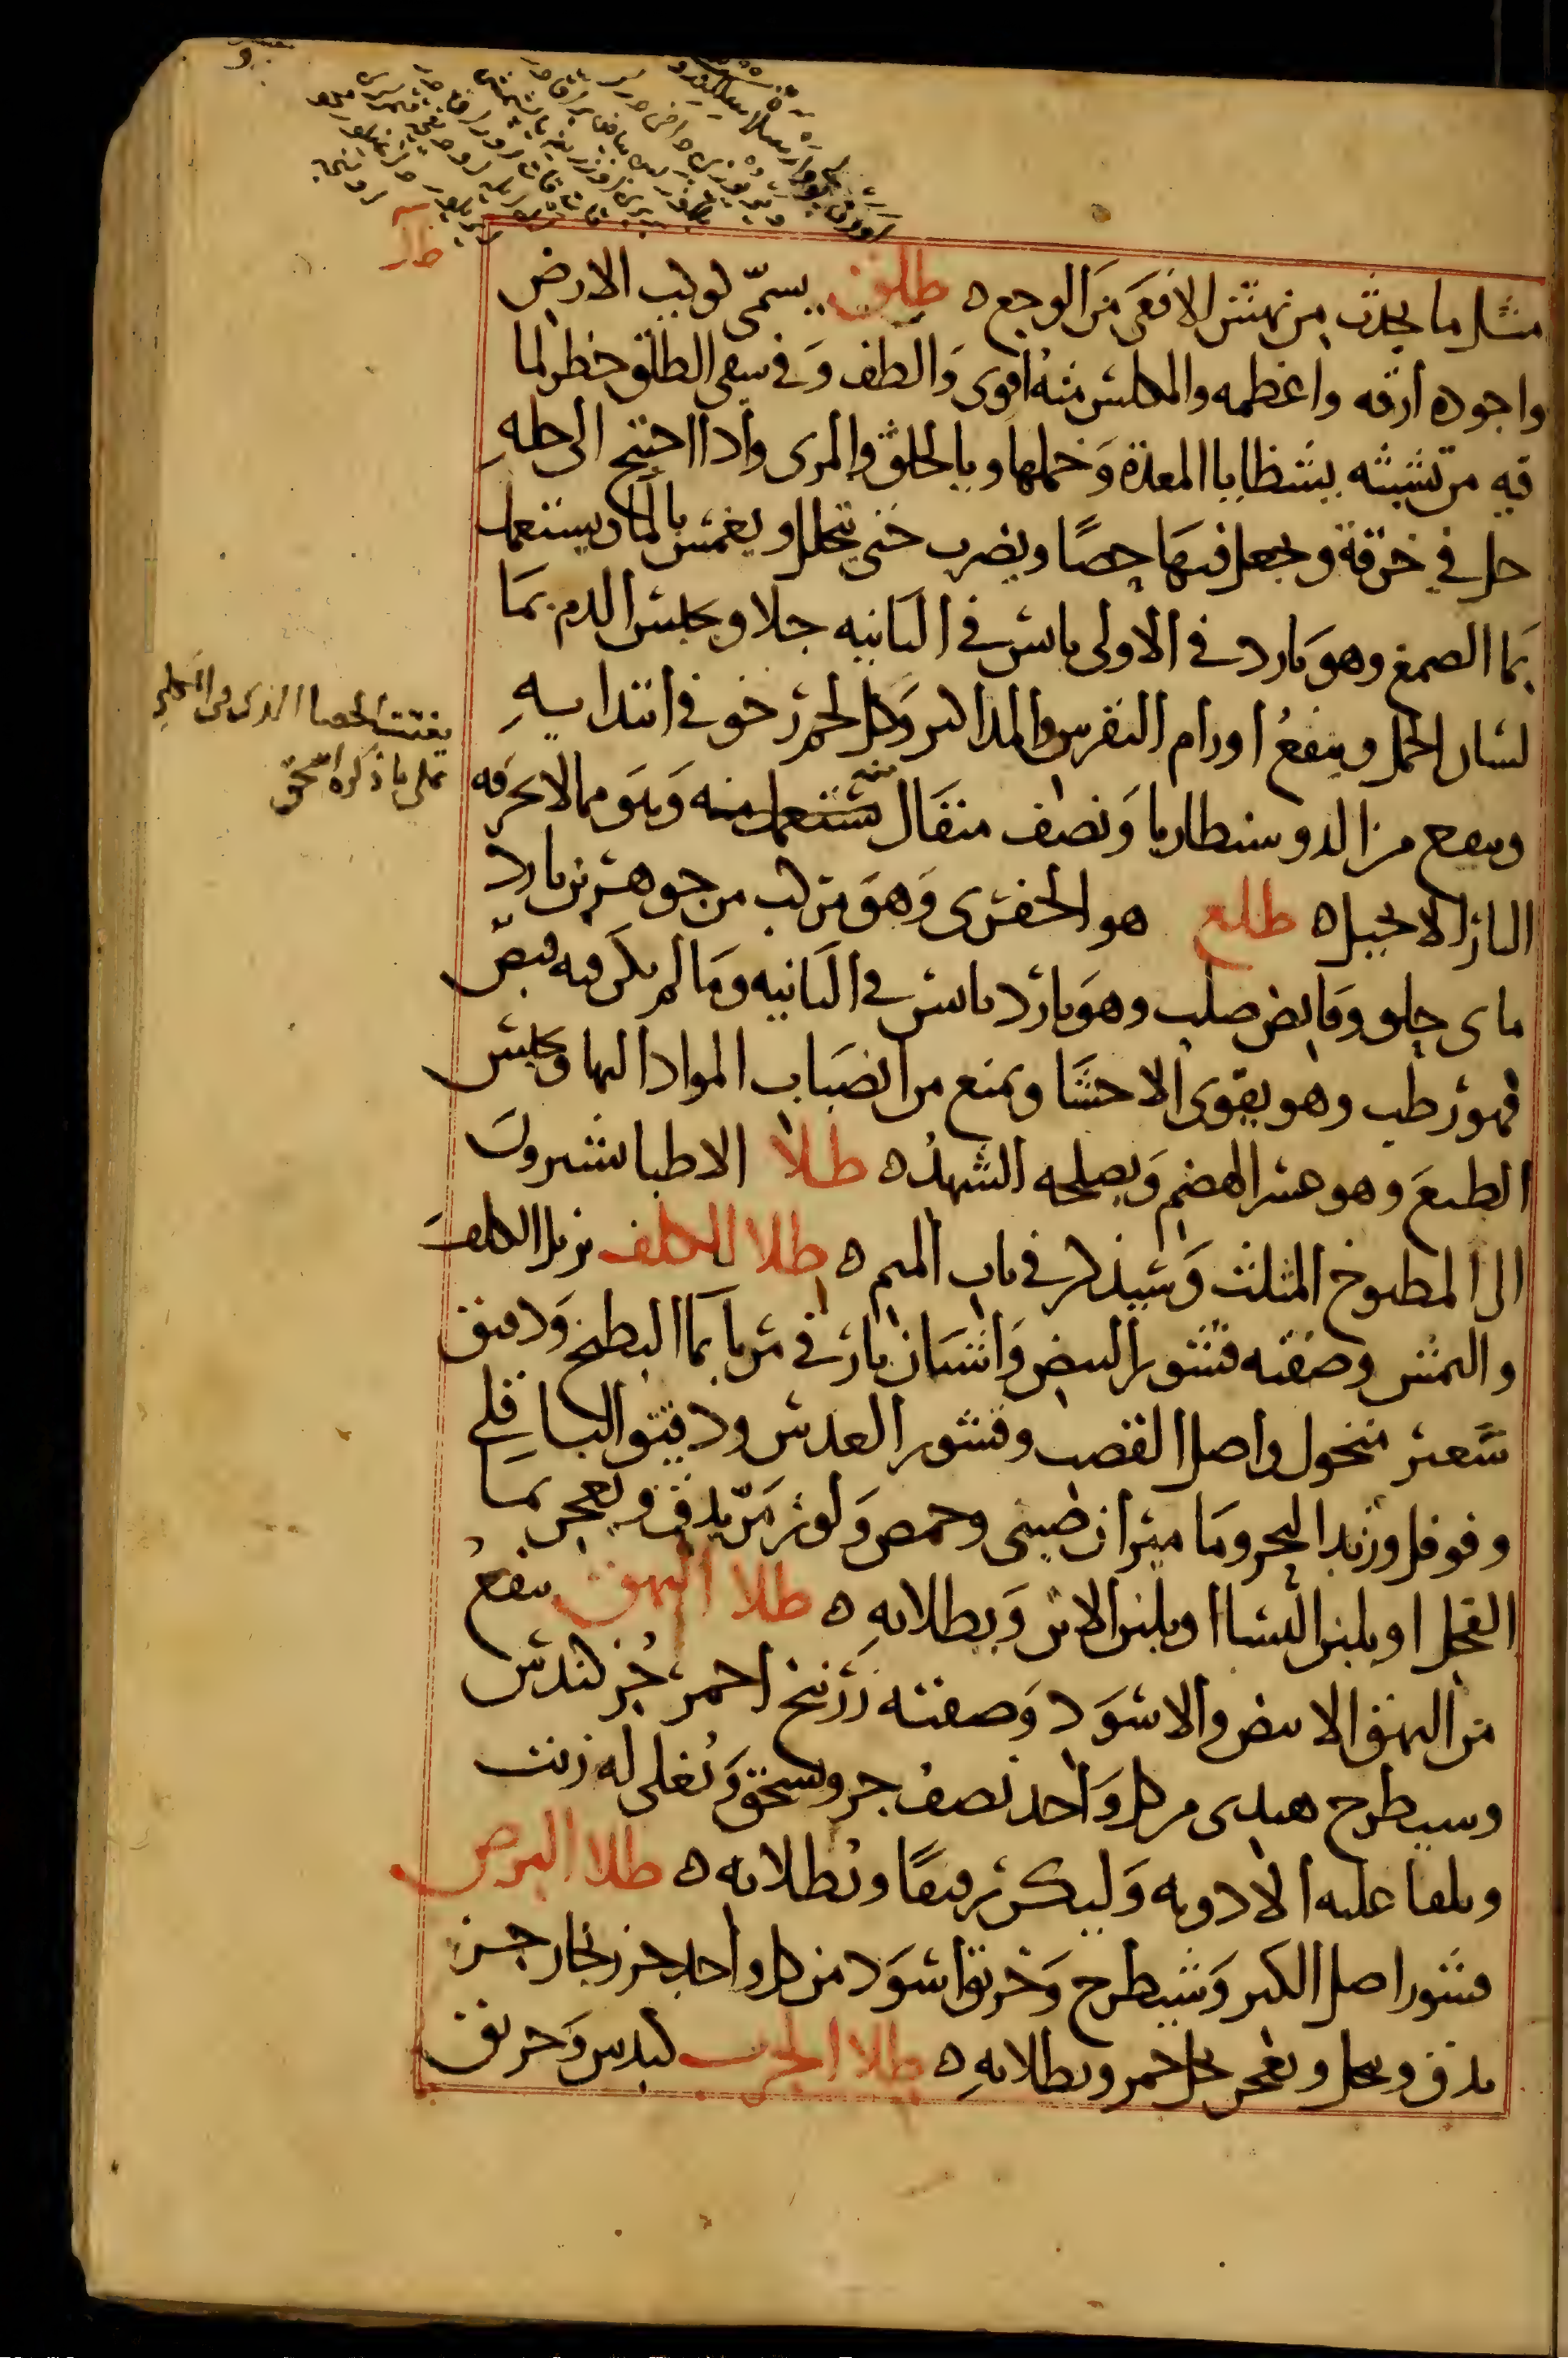 مثل ما يحدث من نهش الافعى من الوجع ه طلق يسمّى لوكب الارض
واجوده ارقه واعظمه والمكلس منه اقوى والطف وفى سقى الطلق خطر لما
فيه من تشبثه بشظايا المعدة وخملها وبالحلق والمرى واذا احتيج الى حله
حل فى خرقة وجعل فيها حصًا ويضرب حتى يتحلل او يغمس بالما ويستعمل
بما الصمغ وهو بارد فى الاولى يابس فى الثانيه جلا وحابس الدم بما
لسان الحمل وينفع اورام النقرس والمذاكير وكل لحم رخو فى ابتدايه
وينفع من الدوسنطاريا ونصف مثقال يستعمل منه وهو مما لا تحرقه
النار الا بحيل ه طلع هو الجفرى وهو مركب من جوهرين بارد
ماى حلو وقابض صلب وهو بارد يابس فى الثانيه وما لم يكن فيه قبض
فهو رطب وهو يقوى الاحشا ويمنع من انصباب المواد اليها ويحبس
الطبع وهو عسر الهضم ويصلحه الشهد ه طلا الاطبا يشيرون
الى المطبوخ المثلث وسيذكر فى باب الميم ه طلا الكلف يزيل الكلف
والنمش وصفته قشور البيض واشنان بارقى مربا بما البطيخ ودقيق
شعير منخول واصل القصب وقشور العدس ودقيق الباقلى
وفوفل وزبد البحر وماميران صينى وحمص ولوز مرّ يدق ويعجن بما
الفجل او بلبن النسا او بلبن الاتن ويطلا به ه طلا البهق ينفع
من البهق الابيض والاسود وصفته زرنيخ احمر جز كندس
وسيطرج هندى من كل واحد نصف جز ويسحق ويغلى له زيت
ويلقا عليه الادويه وليكن رقيقًا ويطلا به ه طلا البرص
قشور اصل الكبر وشيطرج وخربق اسود من كل واحد جز زنجار جز
يدق وينخل ويعجن بخل خمر ويطلا به ه طلا الجرب كندس وخربق
يفتت الحصا الذى فى الكلى
على ما ذكره اسحق